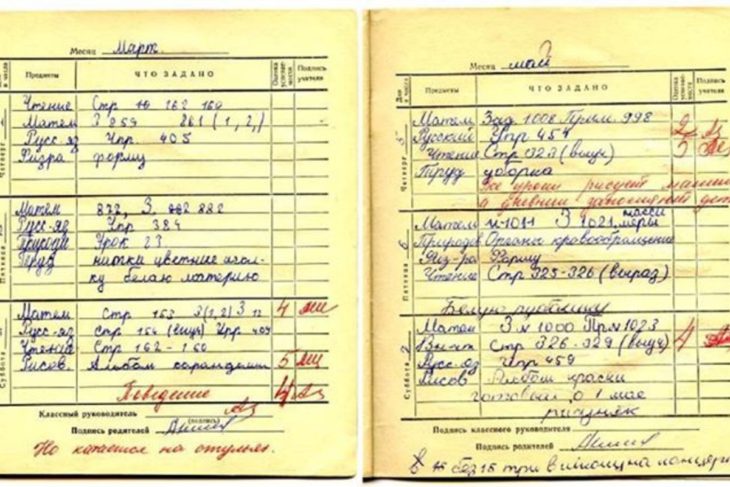 Месяц Март
Предметы ЧТО ЗАДАНО Оценка успеваемости Подпись учителя
Чтение Стр 162 160
Матем З 259 261 (1, 2,)
Русс-яз Упр. 405
Физра форму
Матем 872, З. 882
Русс-яз Упр 384
Урок 23
Труд нитки цветные иголку белаю материю
Матем Стр 153 3(1,2) 3 4
Русс-яз Стр 154 (выуч) Упр 407
Чтение Стр 162-160
Рисов. Альбом карандаши 5
Поведение 4
Классный руководитель
(подпись)
Подпись родителей
Но катается на стульях.
Месяц май
Предметы ЧТО ЗАДАНО Оценка успеваемости Подпись учителя
Четверг 5 Матем Зад 1008 Прим. 998 2
Русский Упр 454 3
Чтение Стр 323 (выуч)
Труд уборка
Все уроки рисует машины
в дневнике
Пятница 6 Матем №1011 З 1021 массы меры
Природов Органы кровообращение
Физ-ра Форму
Чтение Стр 325-326 (выраз)
Белую рубашку
Суббота Матем З № 1000 Пр № 1023
Стр 326-329 (выуч) 4
Русс-яз Упр 459
Рисов Альбом краски
готовый о 1 мае
рисунок
Подпись классного руководителя
Подпись родителей
в без 15 три в школу на концерт